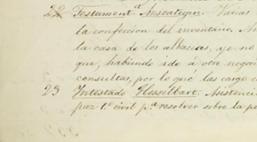 22 Testament.ª Anscategui. Varias
la confección del inventario. A
la casa de los albaceas, q.e no
que, habiendo ido á otro negoci
consultas, por lo que las cargo e
23 Intestado Hesselbart. Asistenci
juz.º 1.º civil p.ª resolver sobre la pe